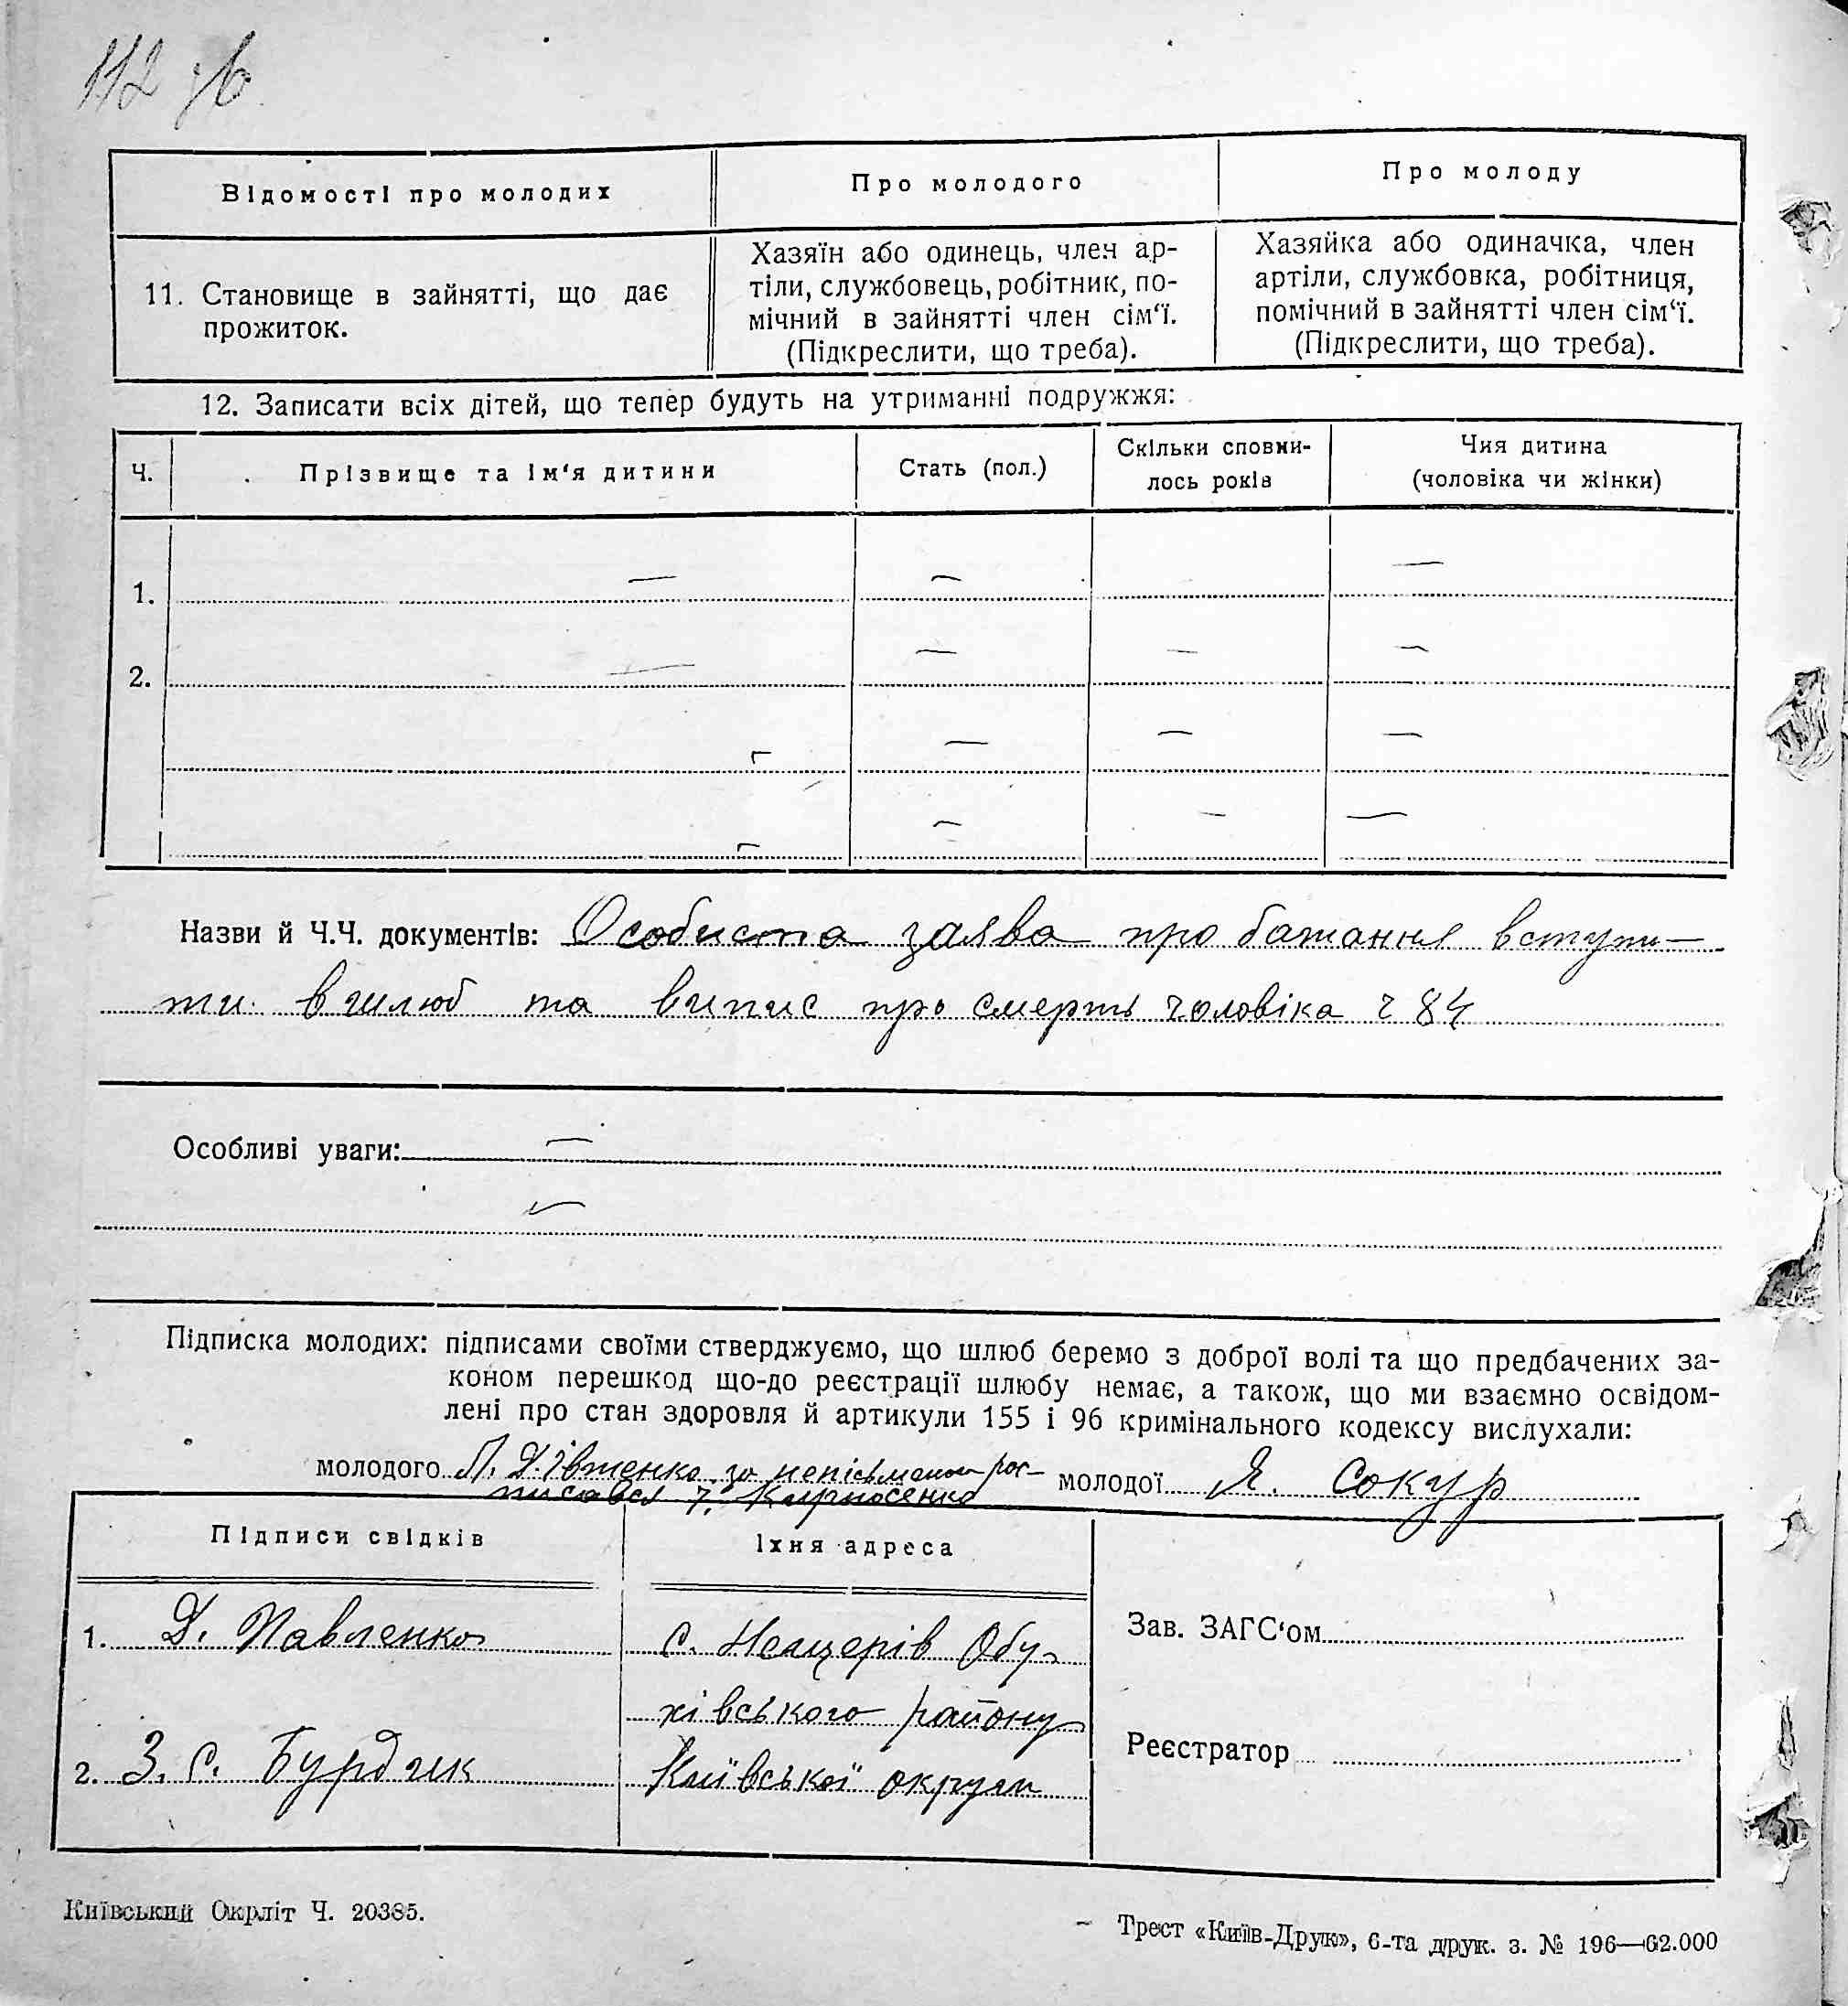 112 зв
Відомості про молодих
Про молодого
Про молоду
11. Становище в зайнятті, що дає
прожиток.
Хазяїн або одинець, член ар-
тіли, службовець, робітник, по-
мічний в зайнятті член сім‘ї.
(Підкреслити, що треба).
Хазяйка або одиначка, член
артіли, службовка, робітниця,
помічний в зайнятті член сім‘ї.
(Підкреслити, що треба).
12. Записати всіх дітей, що тепер будуть на утриманні подружжя:
Ч.
Прізвище та ім‘я дитини
Стать (пол.)
Скільки сповни-
лось років
Чия дитина
(чоловіка чи жінки)
1. — — —
2. — — — —
— — — —
— — — —
Назви й Ч.Ч. документів: Особиста заява про бажання вступи-
ти в шлюб та випис про смерть чоловіка ч 84
Особливі уваги: —
—
Підписка молодих: підписами своїми стверджуємо, що шлюб беремо з доброї волі та що предбачених за-
коном перешкод що-до реєстрації шлюбу немає, а також, що ми взаємно освідом-
лені про стан здоровля й артикули 155 і 96 кримінального кодексу вислухали:
молодого Дівтенко за рос-
писався молодої Я. Сокур
Підписи свідків
Їхня адреса
1. Д. Павленко
с. Нещерів Обу-
хівського району
2. З. С. Бурдик
Київської округи
Зав. ЗАГС‘ом
Реєстратор
Київський Окрліт Ч. 20385.
Трест «Київ-Друк», 6-та друк. з. № 196—62.000